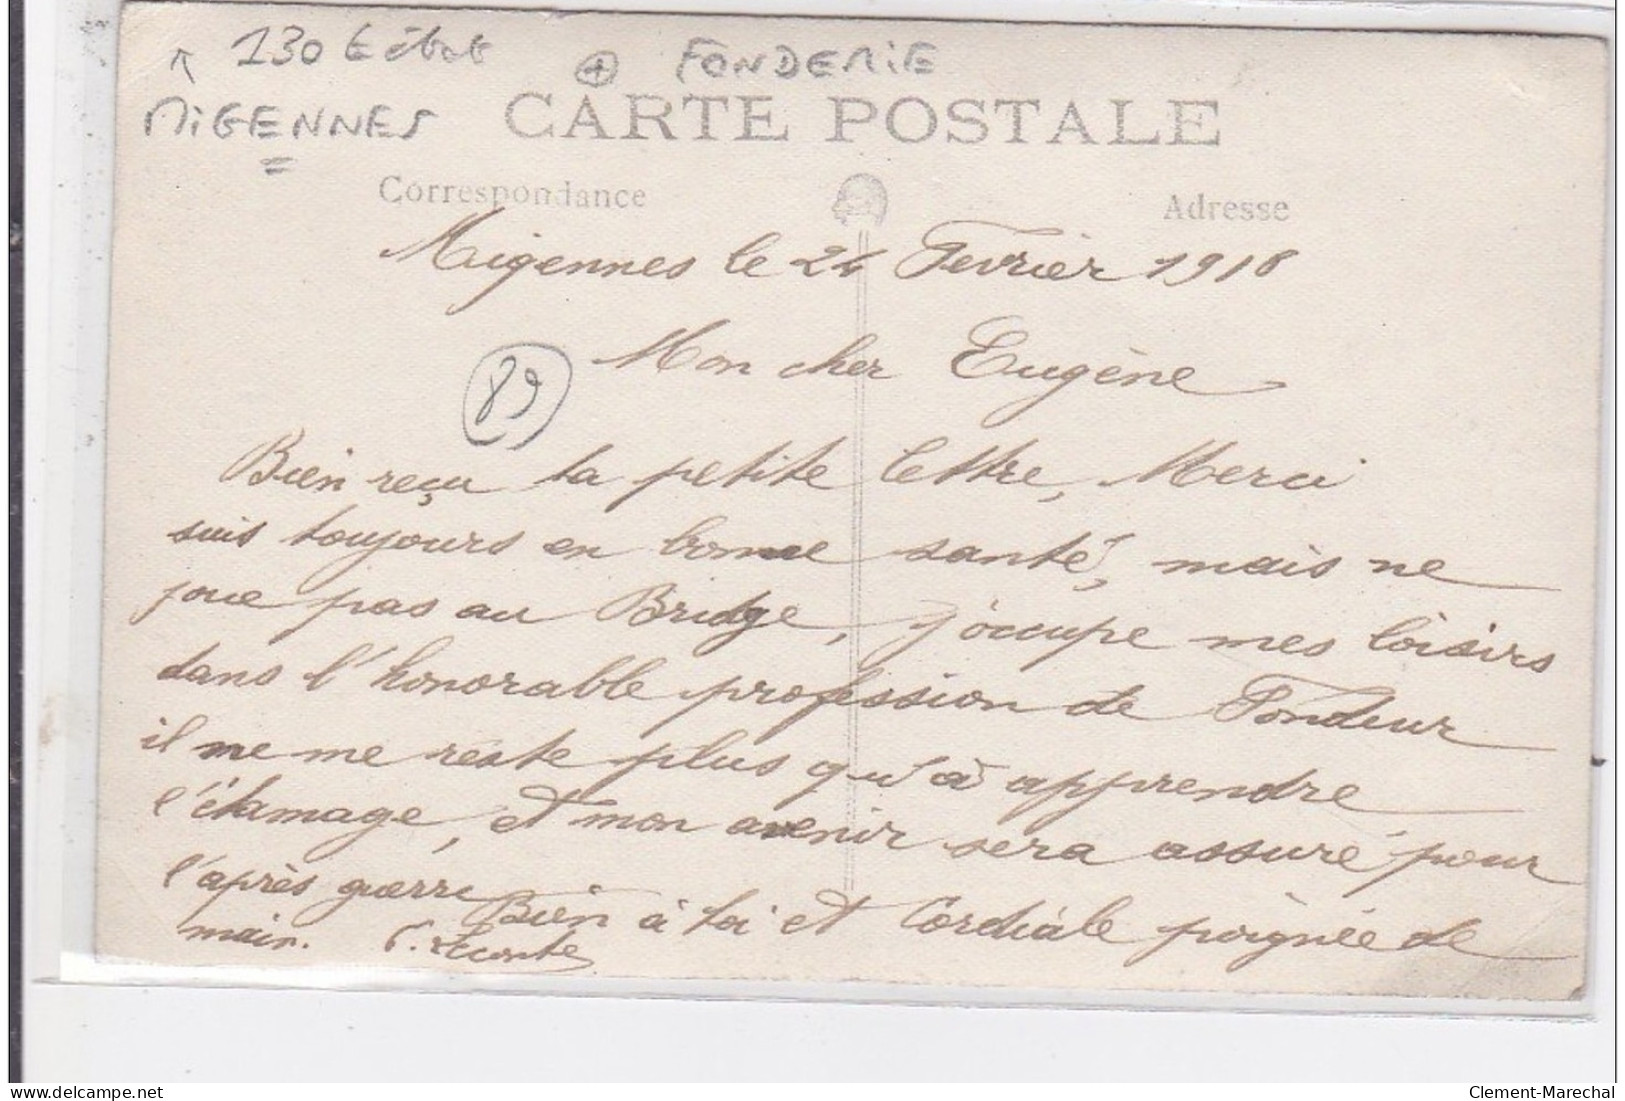 130 € état
+ FONDERIE
MIGENNES
CARTE POSTALE
Correspondance
Adresse
Migennes le 24 Fevrier 1918
Mon cher Eugène
89
Bien reçu ta petite lettre, Merci
suis toujours en bonne santé, mais ne
joue pas au Bridge, j'occupe mes loisirs
dans l'honorable profession de Fondeur
il ne me reste plus qu'à apprendre
l'étamage, et mon avenir sera assuré pour
l'après guerre Bien à toi et Cordiale poignée de
main. Lecomte
delcampe.net
Clement-Marechal